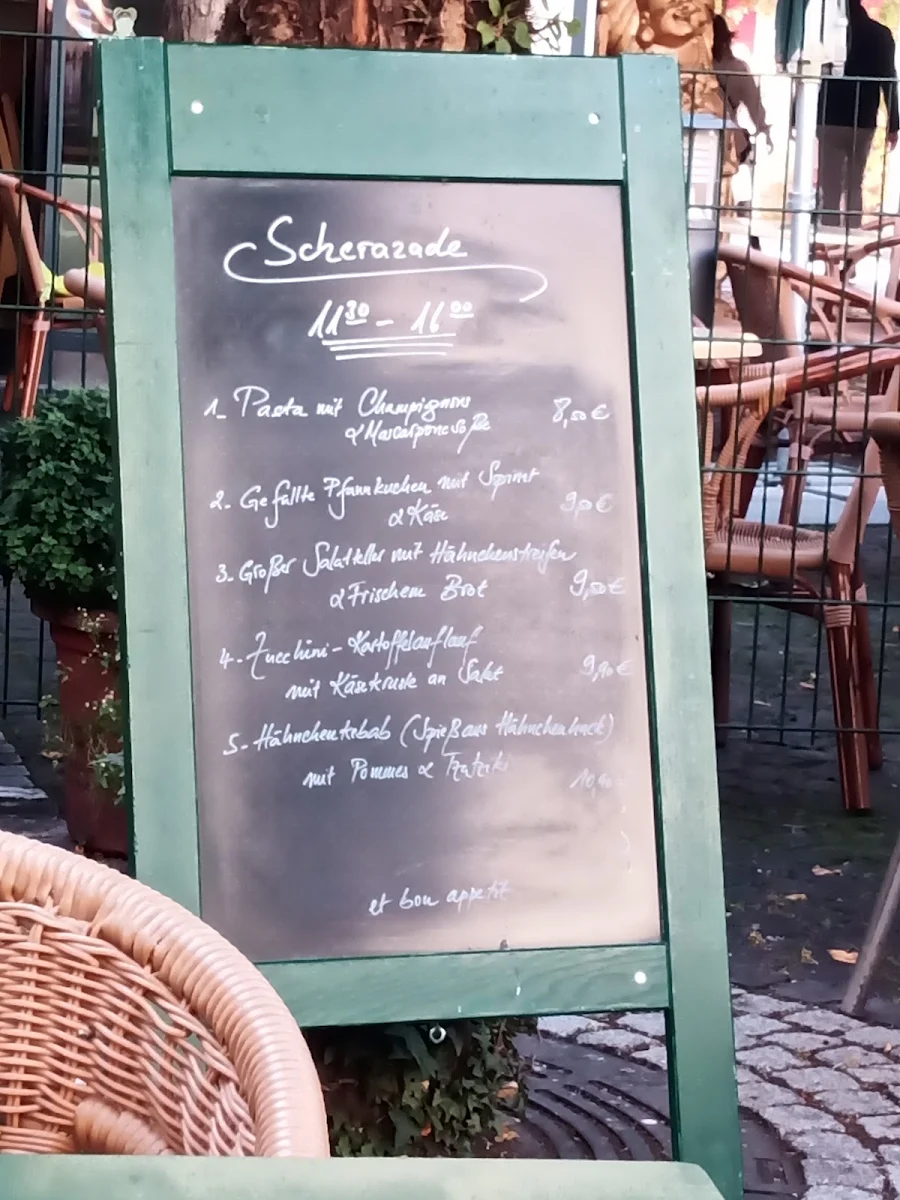 Scherazade
11³⁰ - 16⁰⁰
1- Pasta mit Champignons 8,50 €
& Mascarponesoße
2. Gefüllte Pfannkuchen mit Spinat
& Käse 9,50 €
3- Großer Salatteller mit Hähnchenstreifen
& Frischem Brot 9,50 €
4- Zucchini-Kartoffelauflauf
mit Käsekruste an Salat 9,90 €
5- Hähnchenkebab (Spieß aus Hähnchenhack)
mit Pommes & Tzatziki 10,90
et bon appetit